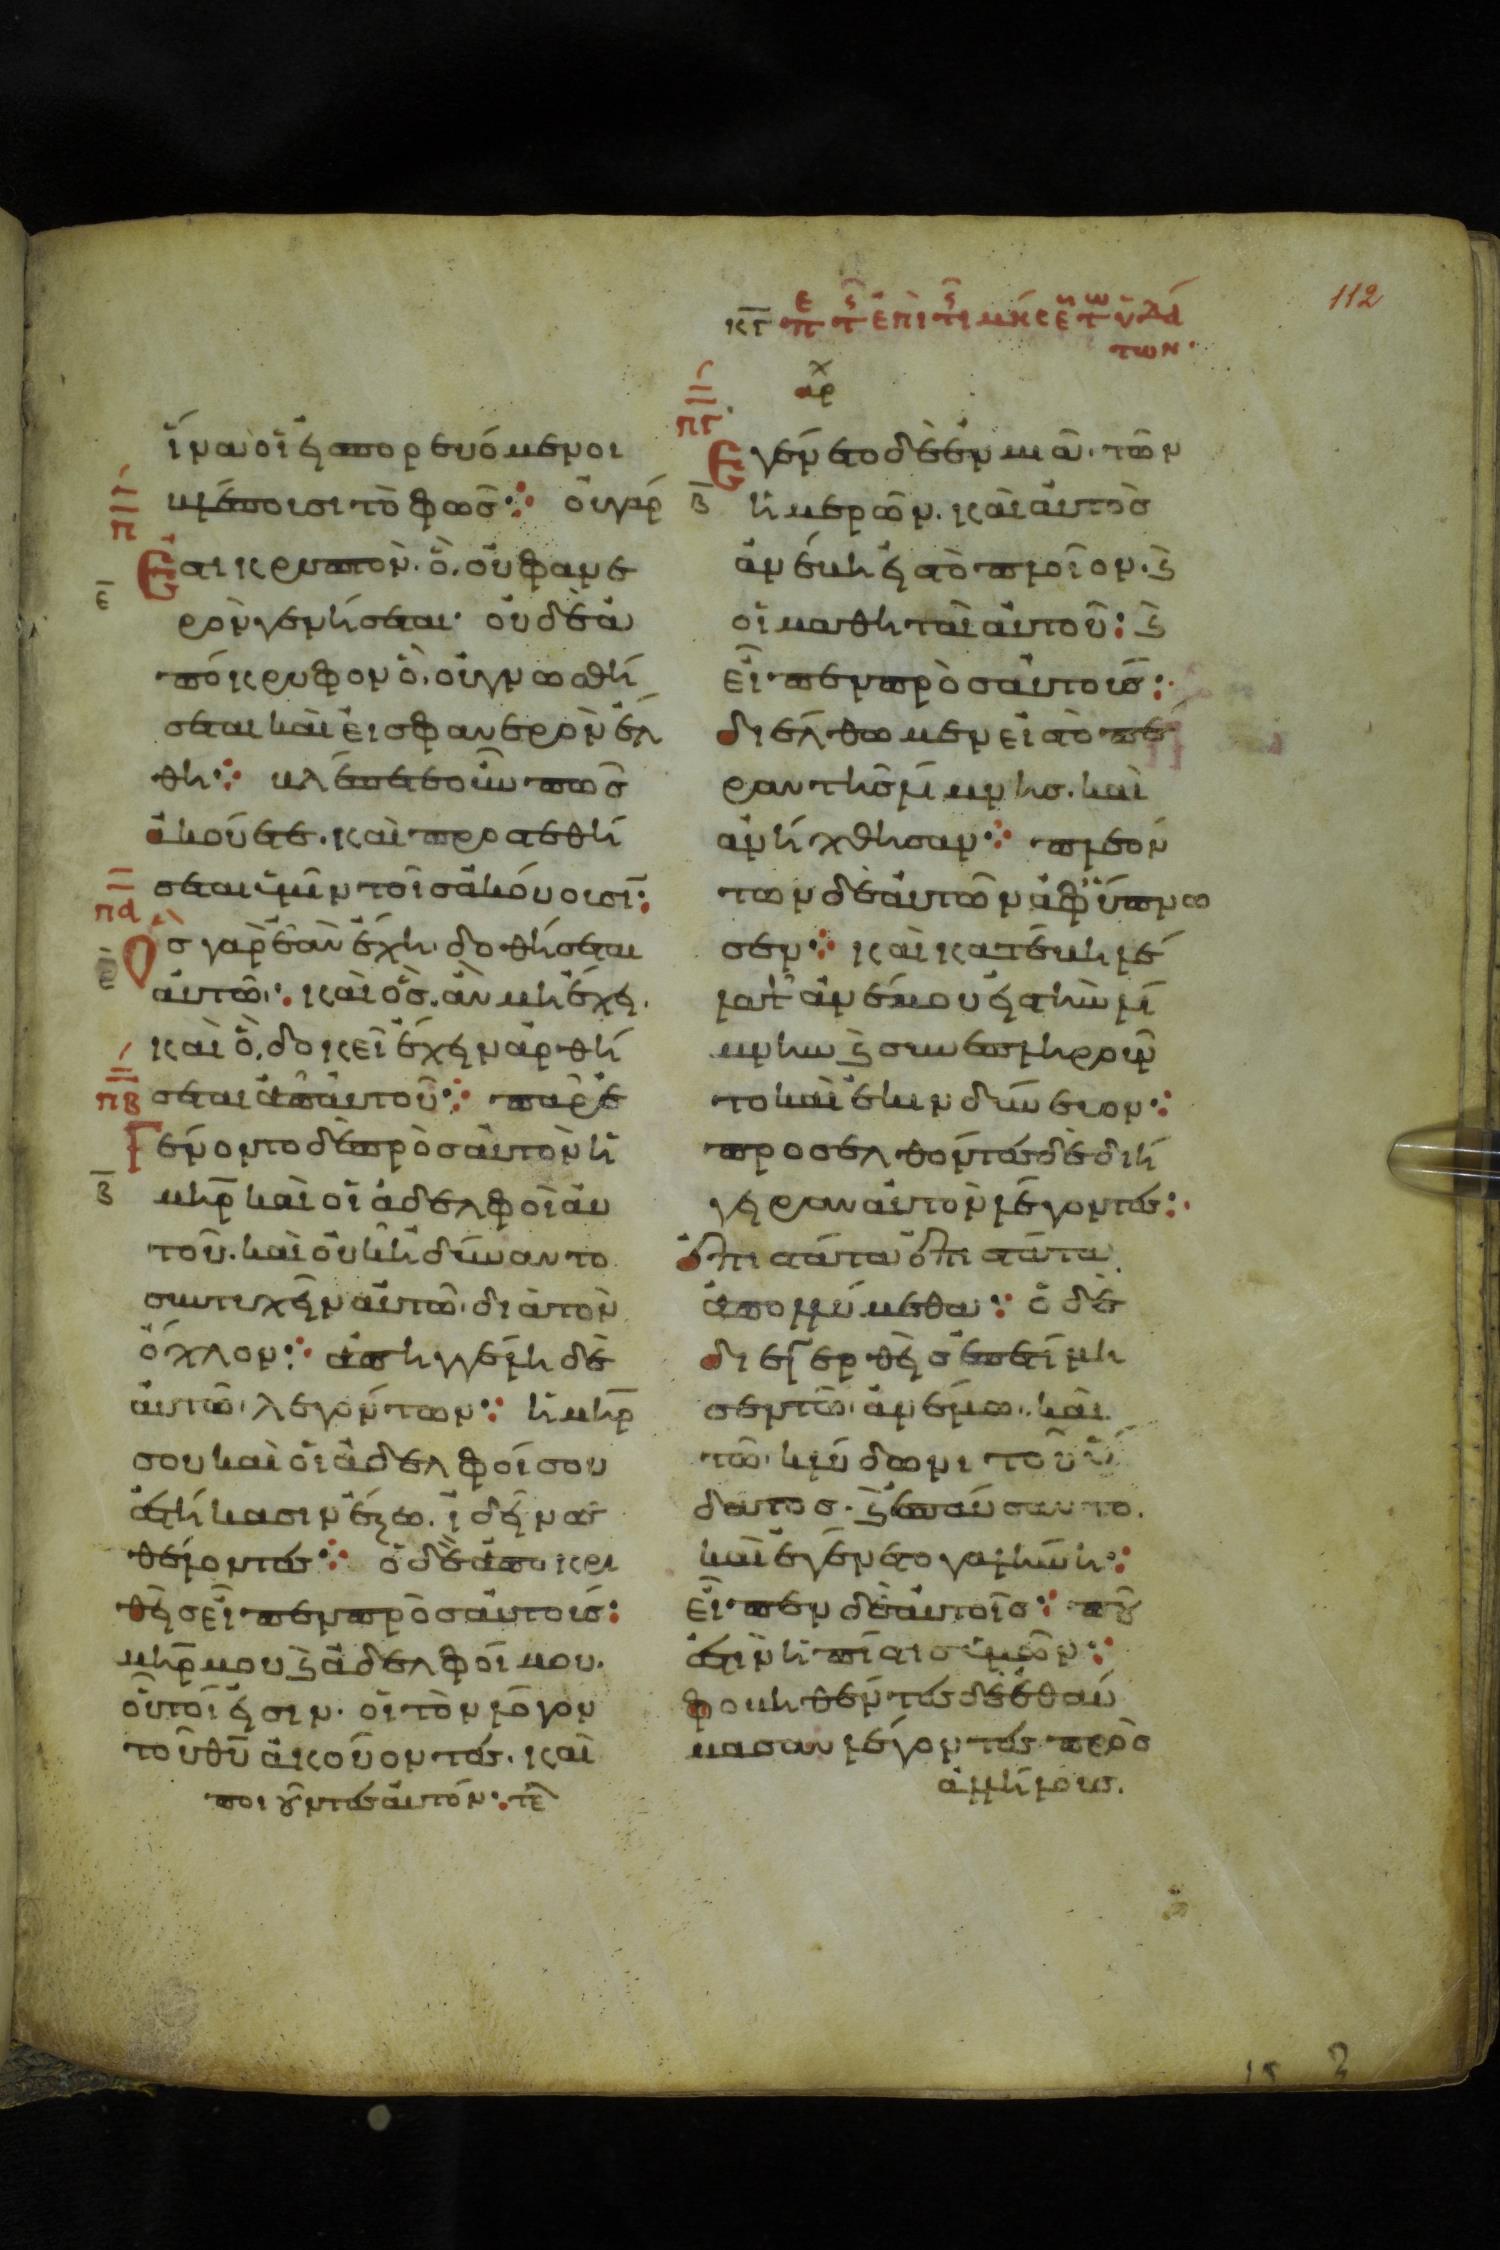 112
κγ π̅ε τ̅ς ἐπιτιμήσε τω ὑδά
των·
αρχ
ἵνα οἱ εἰσπορευόμενοι
βλέπωσι τὸ φῶς: οὐ γάρ
π
ἐστι κρυπτὸν. ὃ. οὐ φανε
ε̅
ρὸν γενήσεται· οὐδὲ ἀ
πόκρυφον ὃ. οὐ γνωσθή
σεται καὶ εἰς φανερὸν ἔλ
θη: βλέπετε οὖν πῶς
ἀκούετε. καὶ προστεθή
σεται ὑμῖν τοῖς ἀκούουσιν:
πα
Ος γὰρ ἐὰν ἔχη· δοθήσεται
αὐτῶ: καὶ ὃς. ἂν μὴ ἔχει.
καὶ ὃ. δοκεῖ ἔχειν ἀρθή
πβ
σεται ἀπ' αὐτοῦ: παρε
Γένοντο δὲ πρὸς αὐτὸν ἡ
β̅
μη̅ρ καὶ οἱ ἀδελφοὶ αὐ
τοῦ. καὶ οὐκ ἠδύναντο
συντυχεῖν αὐτῶ· διὰ τὸν
ὄχλον: ἀπηγγέλη δὲ
αὐτῶ· λεγόντων: ἡ μη̅ρ
σου καὶ οἱ ἀδελφοί σου
ἑστήκασιν ἔξω. ἰδεῖν σε
θέλοντες: ὁ δὲ ἀποκρι
θεὶς εἶπεν πρὸς αὐτούς:
μη̅ρ μου κ ἀδελφοί μου.
οὗτοί εἰσιν. οἱ τὸν λόγον
τοῦ θ̅υ ἀκούοντες. καὶ
ποιοῦντες αὐτόν: τε
πγ
Εγένετο δὲ ἐν μιᾶ· τῶν
β̅
ἡμερῶν. καὶ αὐτὸς
ἀνέβη εἰς τὸ πλοῖον. κ
οἱ μαθηταὶ αὐτοῦ: κ
εἶπεν πρὸς αὐτούς:
διέλθωμεν εἰς τὸ πέ
ραν τῆς λίμνης. καὶ
ἀνήχθησαν: πλεόν
των δὲ αὐτῶν ἀφύπνω
σεν: καὶ κατέβη λέ
λαψ ἀνέμου εἰς τὴν λί
μνην κ συνεπληροῦν
το καὶ ἐκινδύνευον:
προσελθόντες δὲ διή
γειραν αὐτὸν λέγοντες:
ἐπιστάτα ἐπιστάτα.
ἀπολλύμεθα: ὁ δὲ
διεγερθεὶς ἐπετίμη
σεν τῶ· ἀνέμω. καὶ
τῶ· κλύδωνι τοῦ ὕ
δατος. κ ἐπαύσαντο.
καὶ ἐγένετο γαλήνη:
εἶπεν δὲ αὐτοῖς: ποῦ
ἐστὶν ἡ πίστις ὑμῶν:
φοβηθέντες δὲ ἐθαύ
μασαν λέγοντες πρὸς
ἀλλήλους.